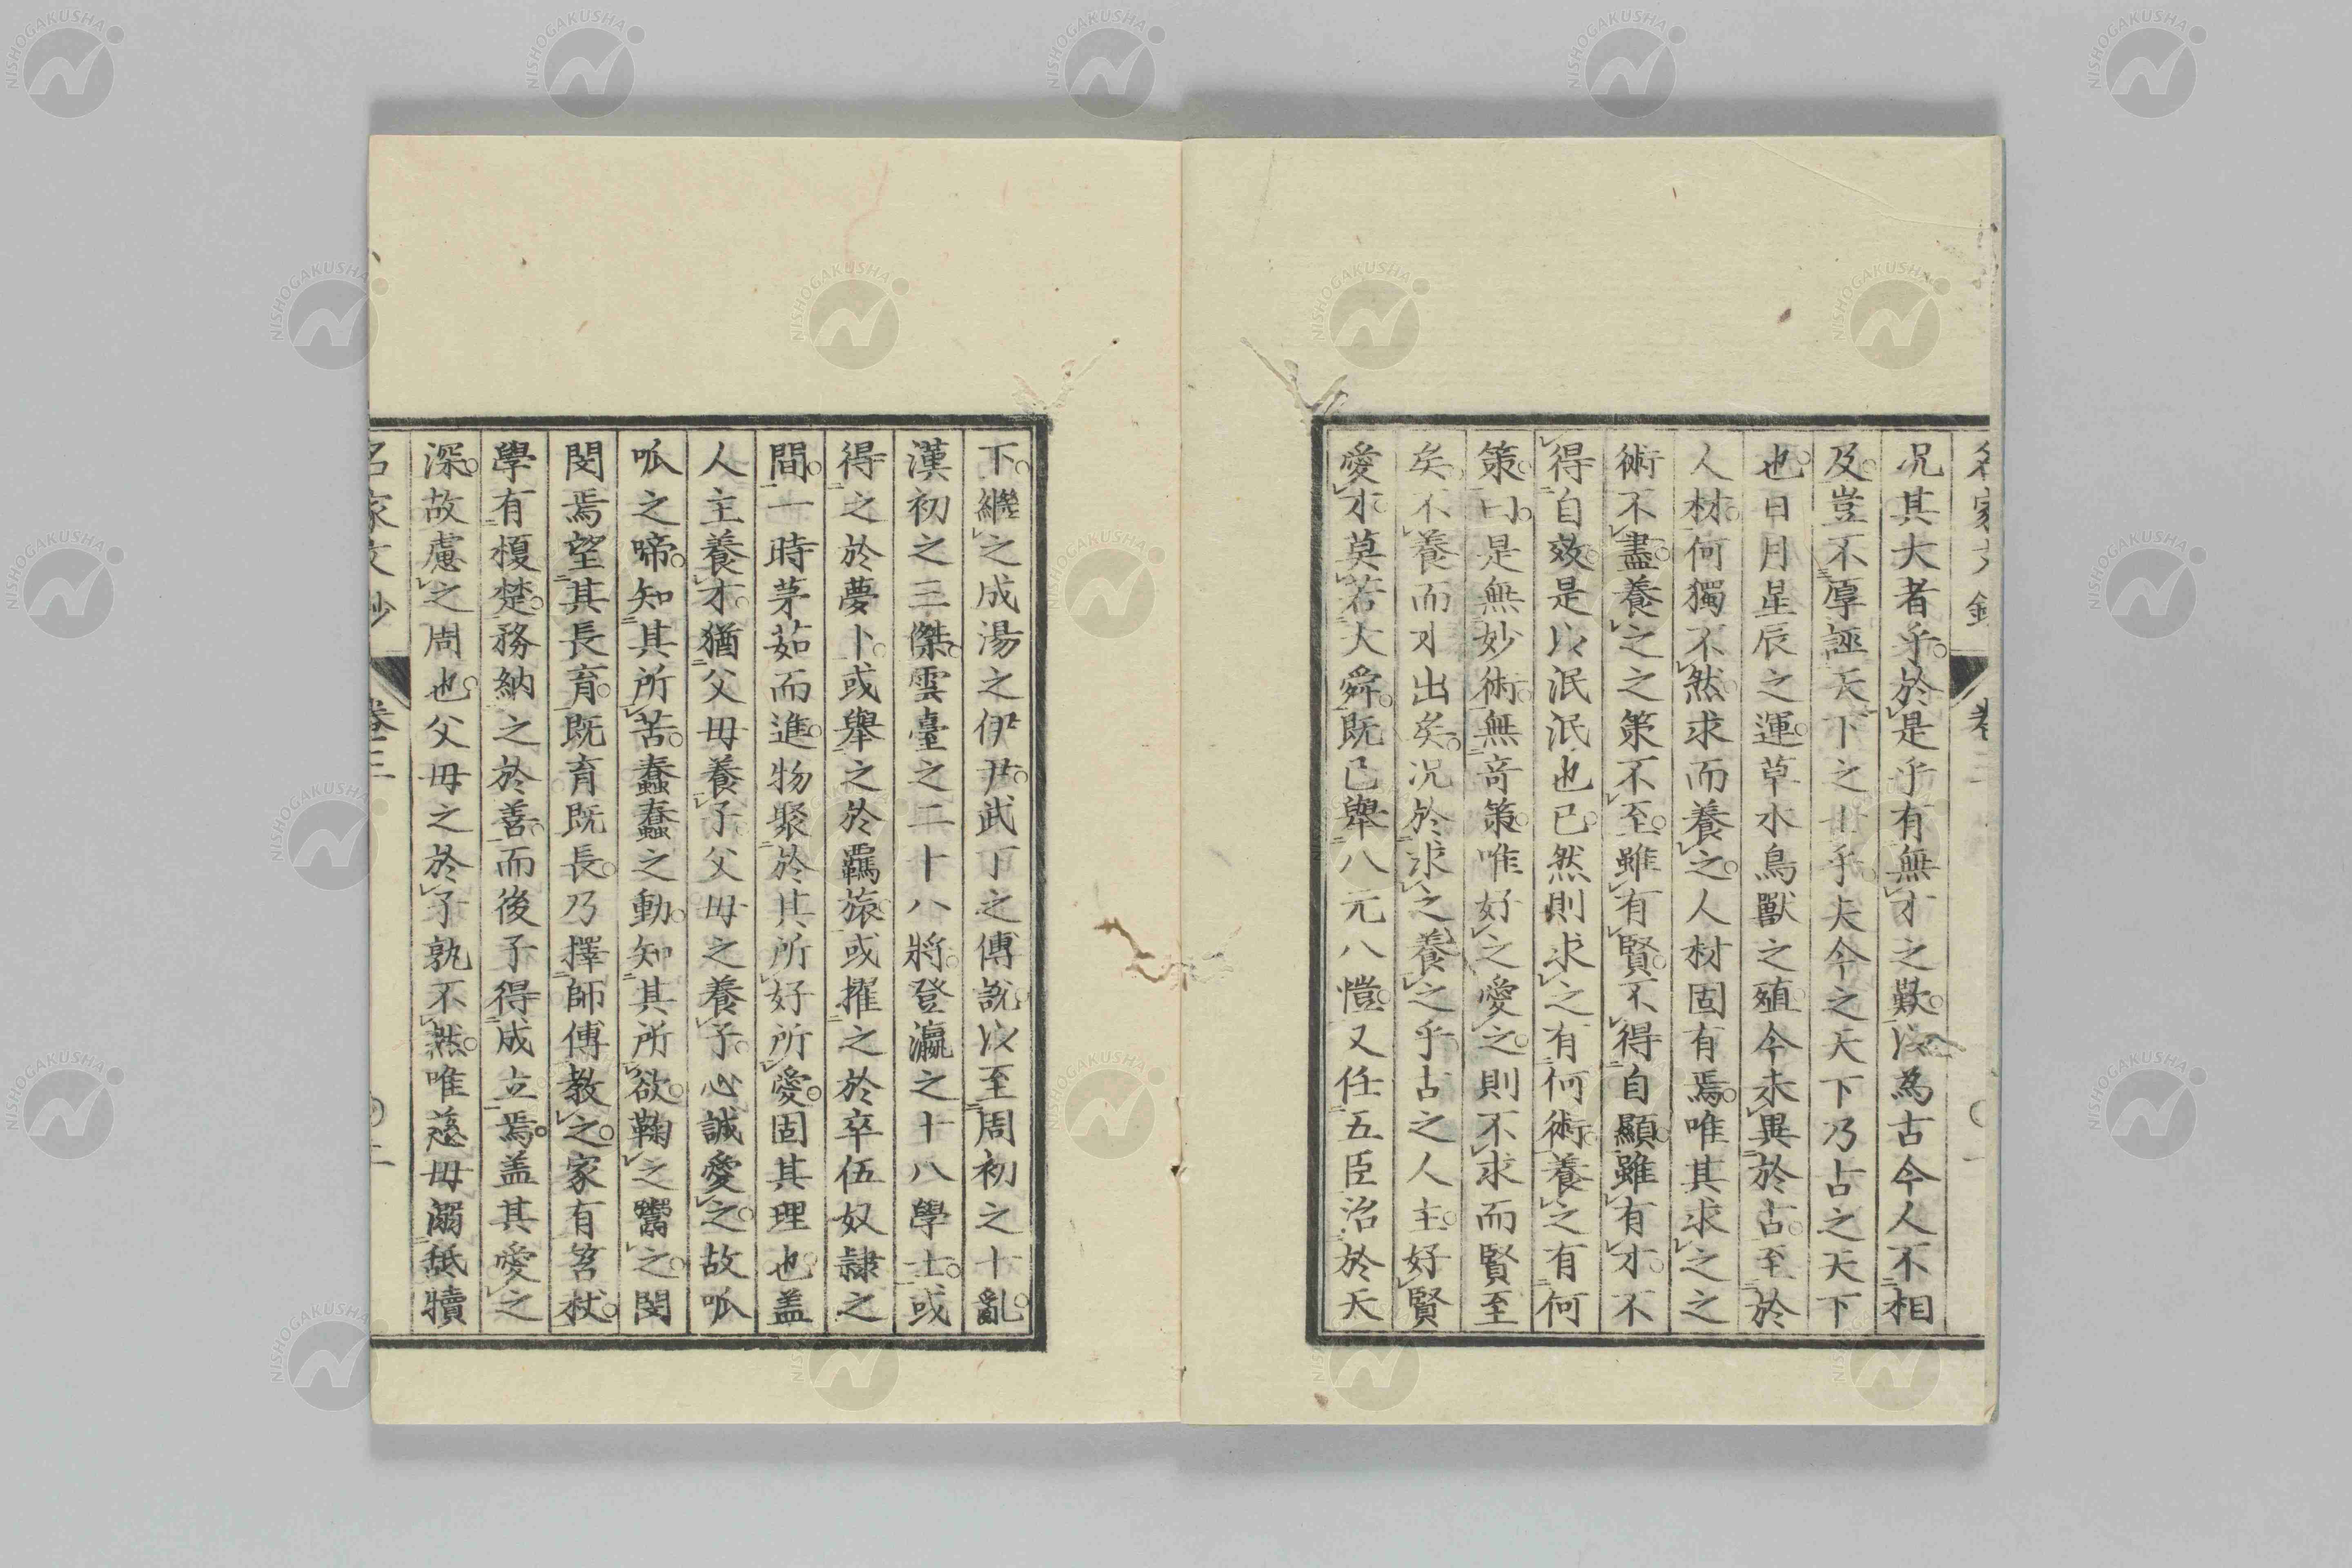 名家文鈔
卷三
一
況其大者乎於是乎有無才之歎以為古今人不相
及豈不厚誣天下之士乎夫今之天下乃古之天下
也日月星辰之運草木鳥獸之殖今未異於古至於
人材何獨不然求而養之人材固有焉唯其求之之
術不盡養之之策不至雖有賢不得自顯雖有才不
得自效是以泯泯也已然則求之有何術養之有何
策曰是無妙術無奇策唯好之愛之則不求而賢至
矣不養而才出矣況於求之養之乎古之人主好賢
愛才莫若大舜既已舉八元八愷又任五臣治於天
下繼之成湯之伊尹武丁之傅說以至周初之十亂
漢初之三傑雲臺之二十八將登瀛之十八學士或
得之於夢卜或舉之於羈旅或擢之於卒伍奴隸之
間一時茅茹而進物聚於其所好所愛固其理也盖
人主養才猶父母養子父母之養子心誠愛之故呱
呱之啼知其所苦蠢蠢之動知其所欲鞠之鬻之閔
閔焉望其長育既育既長乃擇師傅教之家有笞杖
學有榎楚務納之於善而後子得成立焉盖其愛之
深故慮之周也父母之於子孰不然唯慈母溺舐犢
名家文鈔
卷三
二
NISHOGAKUSHA